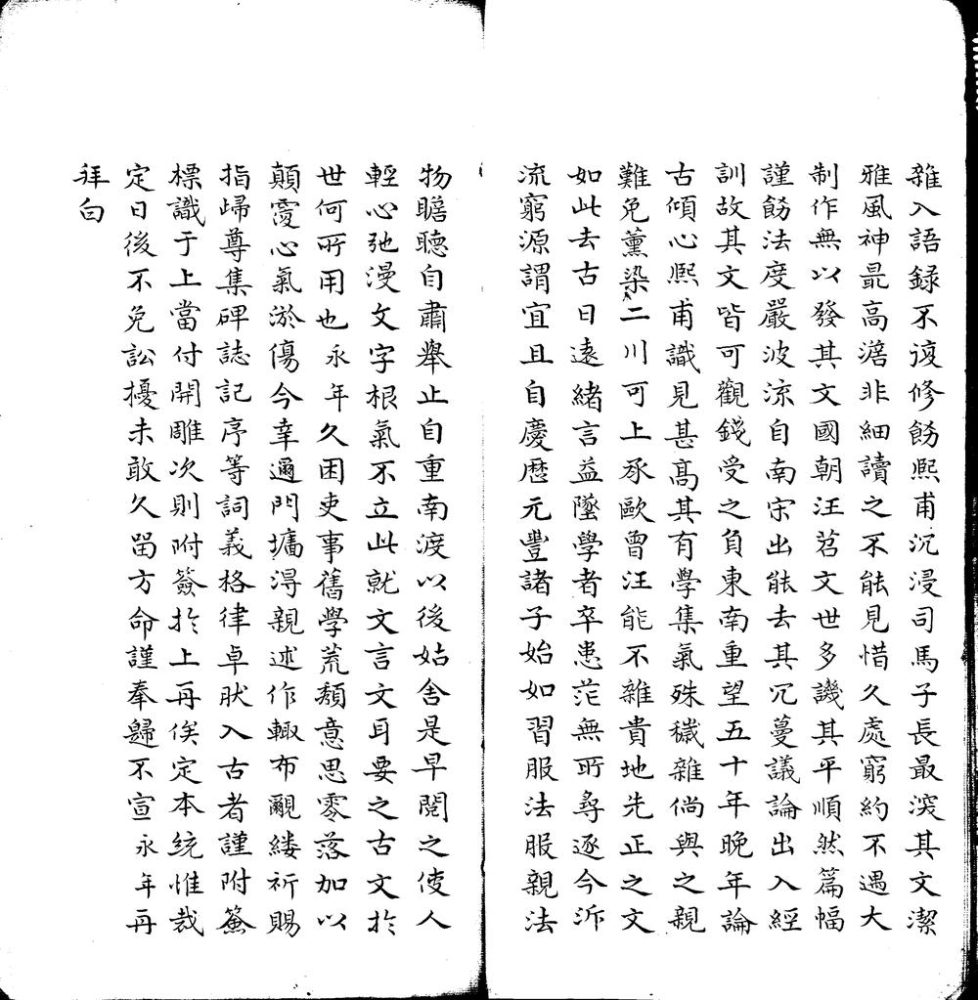 雜入語録不復修飭熙甫沉浸司馬子長最深其文潔
雅風神最高澹非細讀之不能見惜久處窮約不遇大
制作無以發其文國朝汪苕文世多譏其平順然篇幅
謹飭法度嚴波流自南宋出能去其冗蔓議論出入經
訓故其文皆可觀錢受之負東南重望五十年晚年論
古傾心熙甫識見甚髙其有學集氣殊穢雜倘與之親
難免薰染二川可上承歐曾汪能不雜貴地先正之文
如此去古日逺緒言益墜學者卒患茫無所尋逐今泝
流窮源謂宜且自慶歴元豐諸子始如習服法服親法
物瞻聴自肅舉止自重南渡以後姑舍是早閱之使人
輕心弛漫文字根氣不立此就文言文耳要之古文於
世何所用也永年久困吏事舊學荒頽意思零落加以
顛䨱心氣淤傷今幸邇門墉淂親述作輙布覼縷祈賜
指歸尊集碑誌記序等詞義格律卓肰入古者謹附籤
標識于上當付開雕次則附簽扵上再俟定本統惟裁
定日後不免訟擾未敢久畱方命謹奉歸不宣永年再
拜白